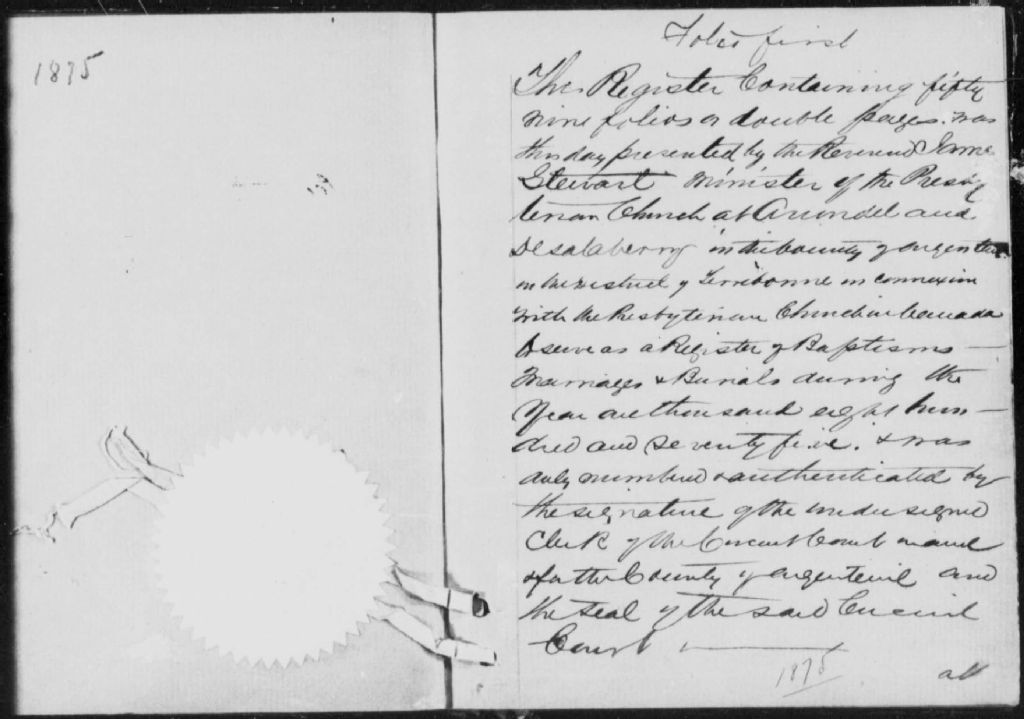 1875
Folio first
This Register Containing fifty
nine folios or double pages. was
this day presented by the Reverend
Stewart minister of the Presby
terian Church at Arundel and
De Salaberry in the County of Argenteuil
in the District of Terrebonne in connexion
with the Presbyterian Church in Canada
to serve as a Register of Baptisms —
Marriages & Burials during the
Year one thousand eight hun —
dred and seventy five. & was
duly numbered & authenticated by
the signature of the undersigned
Clerk of the Circuit Court in and
for the County of Argenteuil and
the seal of the said Circuit
Court ———
1875
all